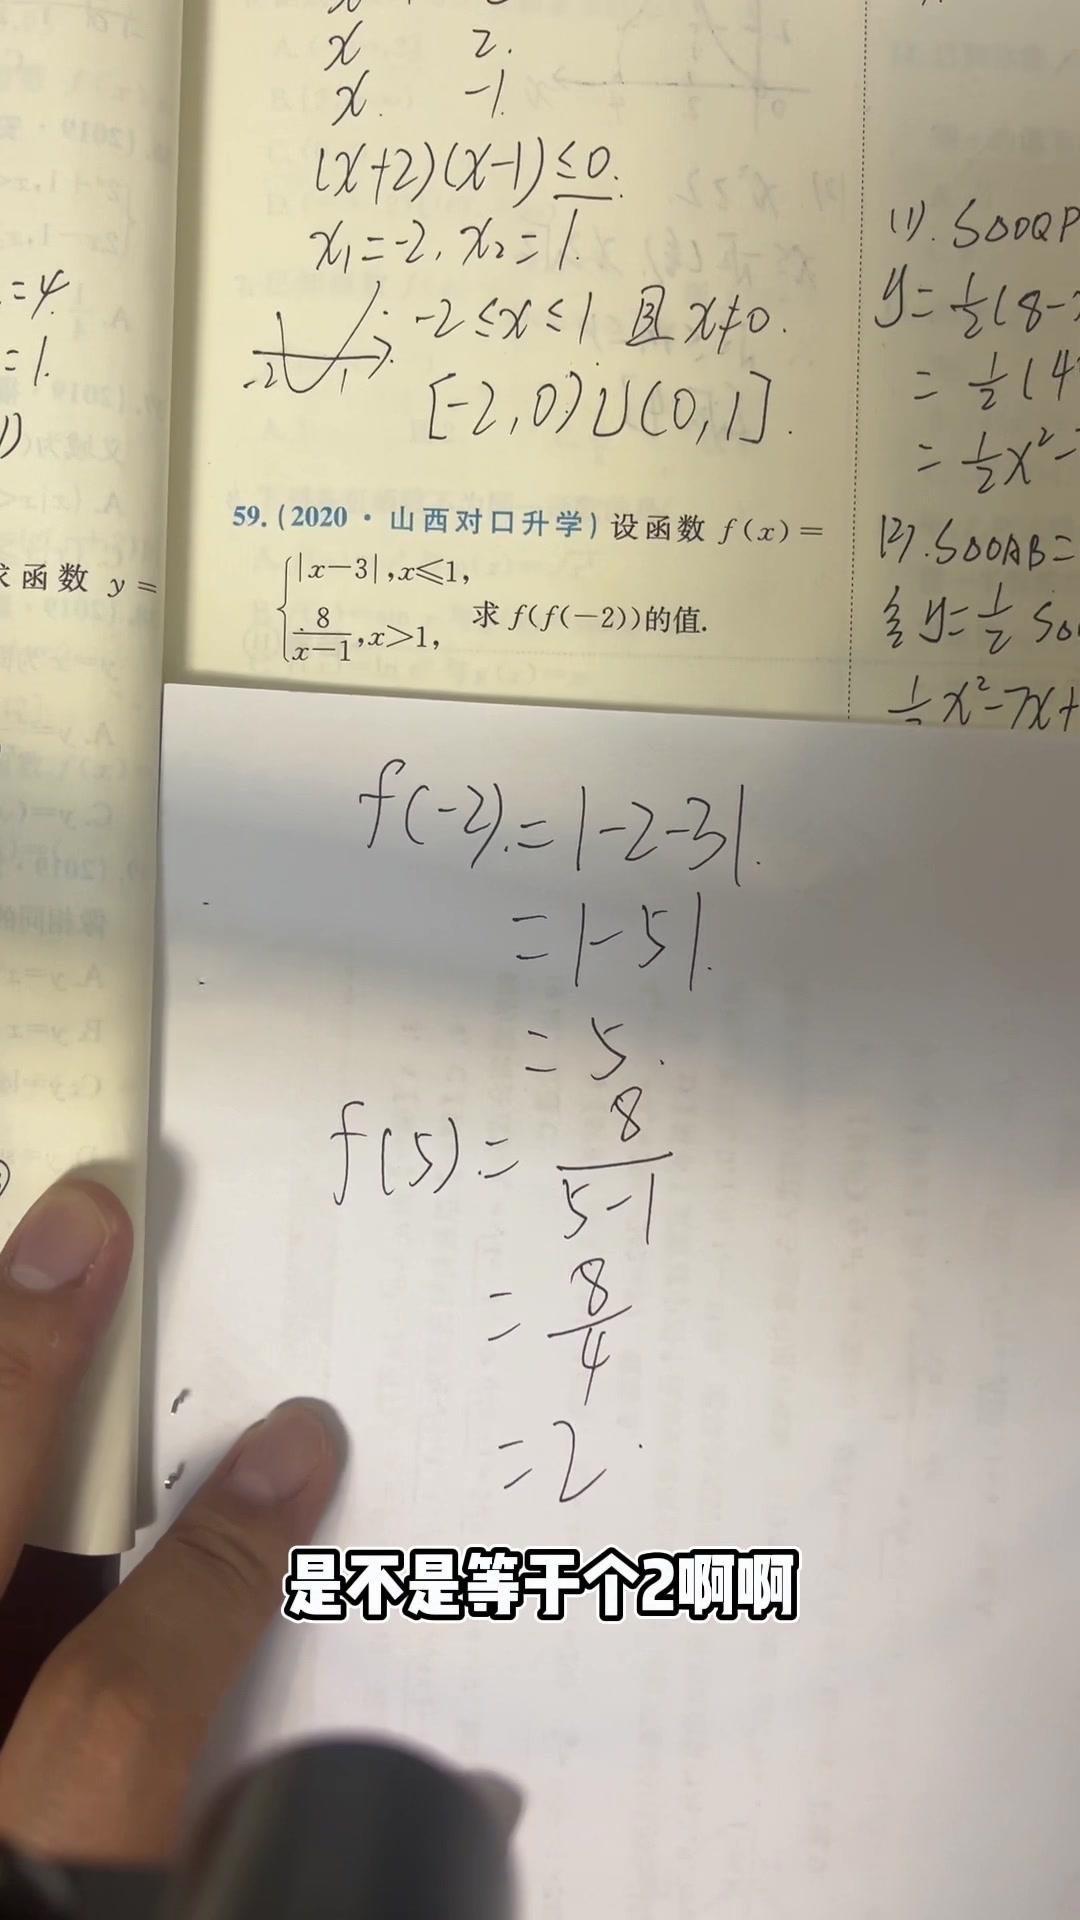 x 2.
x -1.
(x+2)(x-1)≤0.
x₁=-2, x₂=1.
-2≤x≤1 且 x≠0.
-2 1
[-2,0)∪(0,1].
=4.
=1.
求函数 y=
59.(2020·山西对口升学)设函数 f(x)=
|x-3|,x≤1,
8/(x-1),x>1,
求 f(f(-2))的值.
(1). S△OQP
y=1/2(8-
=1/2(4
=1/2x²-
(2). S△OAB=
y=1/2 S
x²-7x+
f(-2).=|-2-3|.
=|-5|.
=5.
f(5)=8/(5-1)
=8/4
=2.
是不是等于个2啊啊